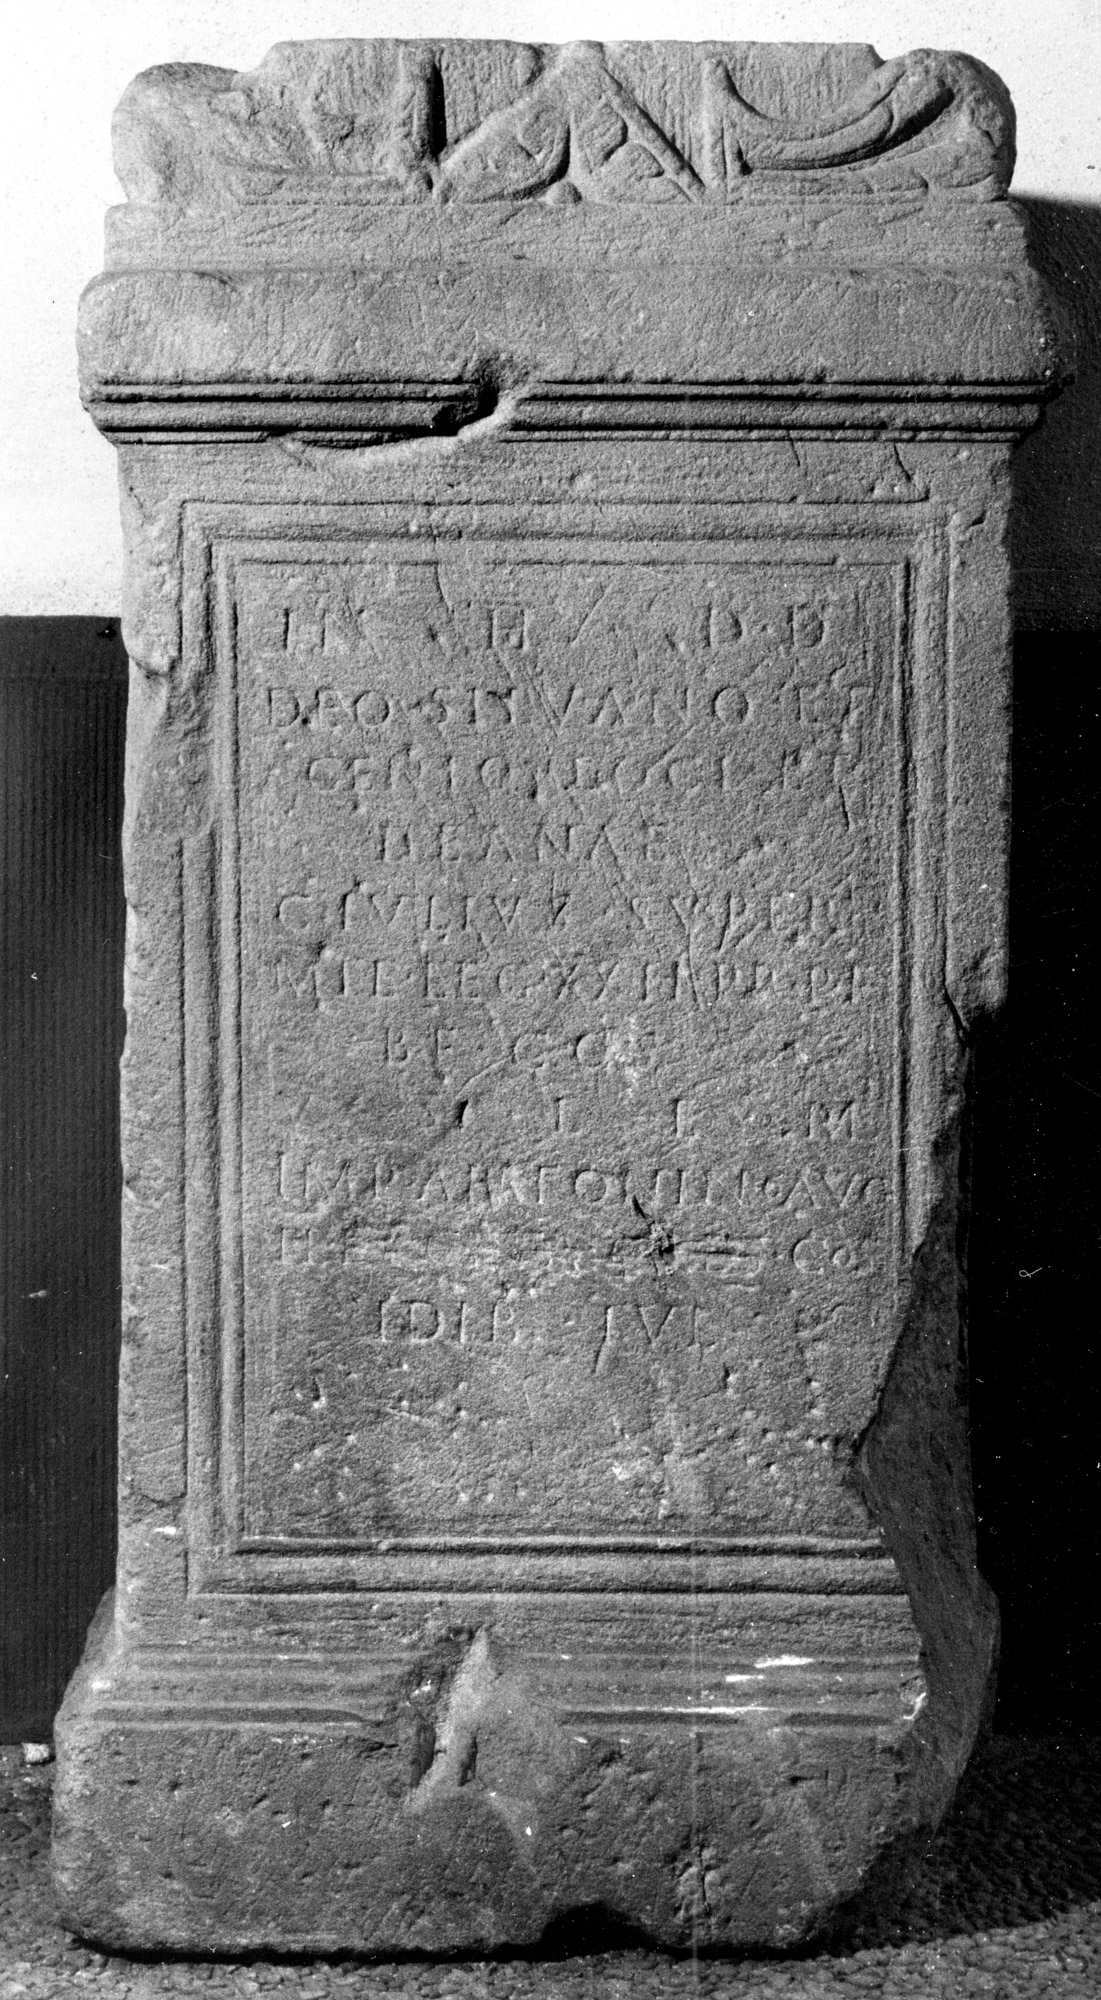 IN · H · D · D
DEO · SILVANO · ET
GENIO · LOCI · ET
DEANAE
C IVLIVS · SVPER
MIL LEG · XXII PR · P F
BF · COS
V S L L · M
IMP · ANTONINO AVG
II · CO
IDIB · IVL